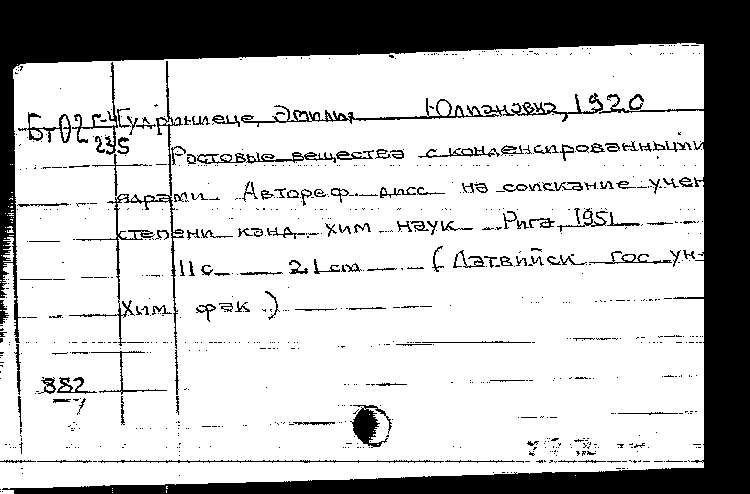 Бт02 Г-4/235 Гудриниеце, Эмилия Юлиановна, 1920
Ростовые вещества с конденсированными
ядрами Автореф дисс на соискание учен
степени канд. хим наук Рига, 1951
11 с 21 cm (Латвийск гос ун-
Хим фак)
882